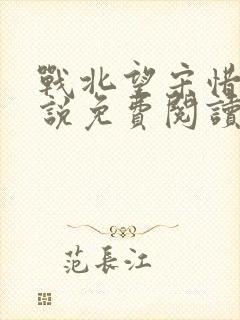 戰北望宋惜
說免費閱讀
范長江